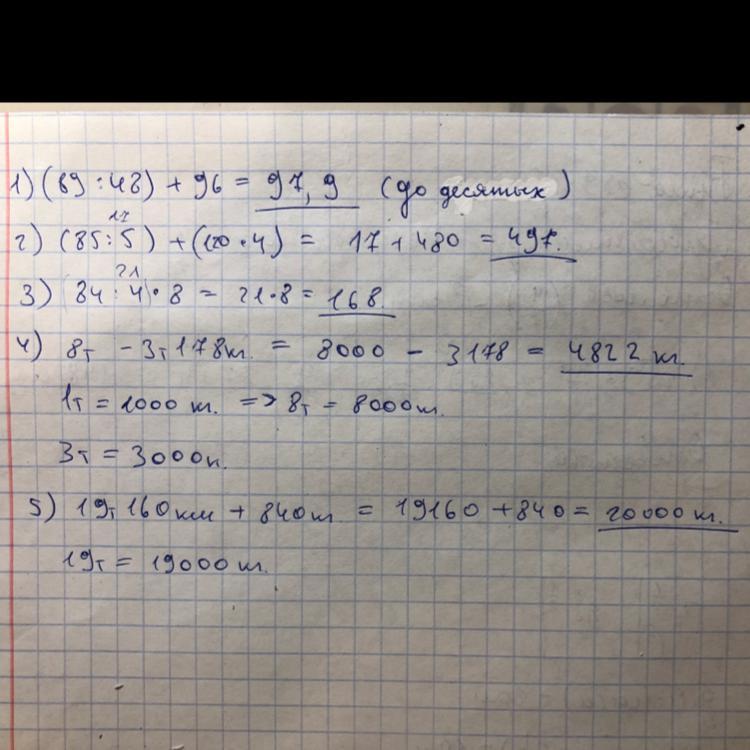 1) (89 : 48) + 96 = 97,9 (до десятых)
17
2) (85 : 5) + (120 • 4) = 17 + 480 = 497.
21
3) (84 : 4) • 8 = 21 • 8 = 168.
4) 8т - 3т 178кг. = 8000 - 3178 = 4822 кг.
1т = 1000 кг. => 8т = 8000кг.
3т = 3000к.
5) 19т 160км + 840кг = 19160 + 840 = 20000 кг.
19т = 19000 кг.